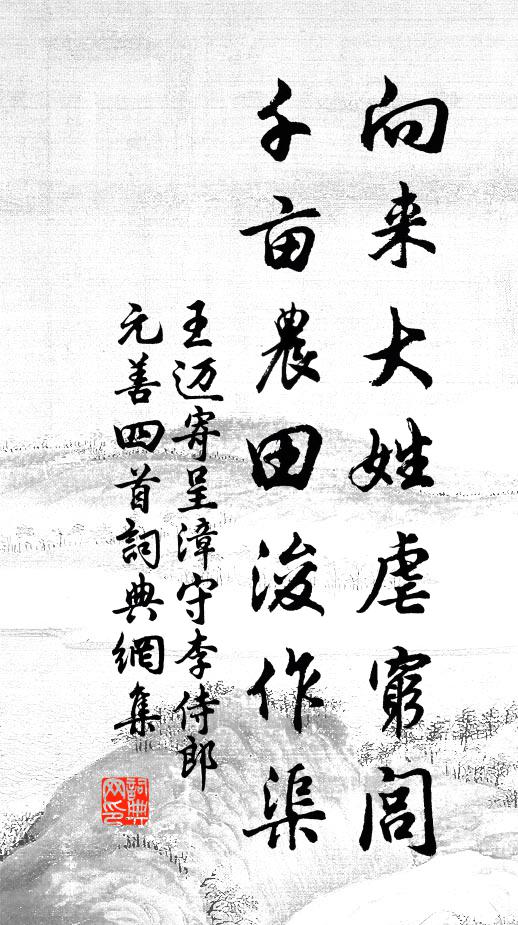 向来大姓虐窮閻
千亩農田浚作渠
王迈寄呈漳守李侍郎
元善四首詞典網集
詞典网印